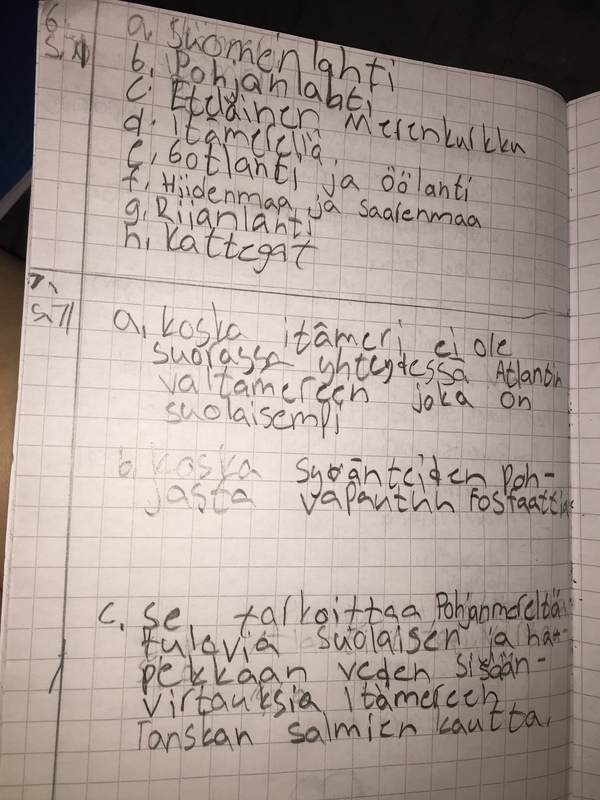 6.
s.71
a. Suomenlahti
b. Pohjanlahti
c. Eteläinen Merenkurkku
d. itämerellä
e. Gotlanti ja öölanti
f. Hiidenmaa ja Saarenmaa
g. Riianlahti
h. Kattegat
7.
s.71
a. koska itämeri ei ole
suorassa yhteydessä Atlantin
valtamereen joka on
suolaisempi
b. koska syvänteiden poh-
jasta vapautuu fosfaattia
c. se tarkoittaa Pohjanmereltä
tulevia suolaisen ja hap-
pekkaan veden sisään-
virtauksia itämereen
Tanskan salmien kautta.